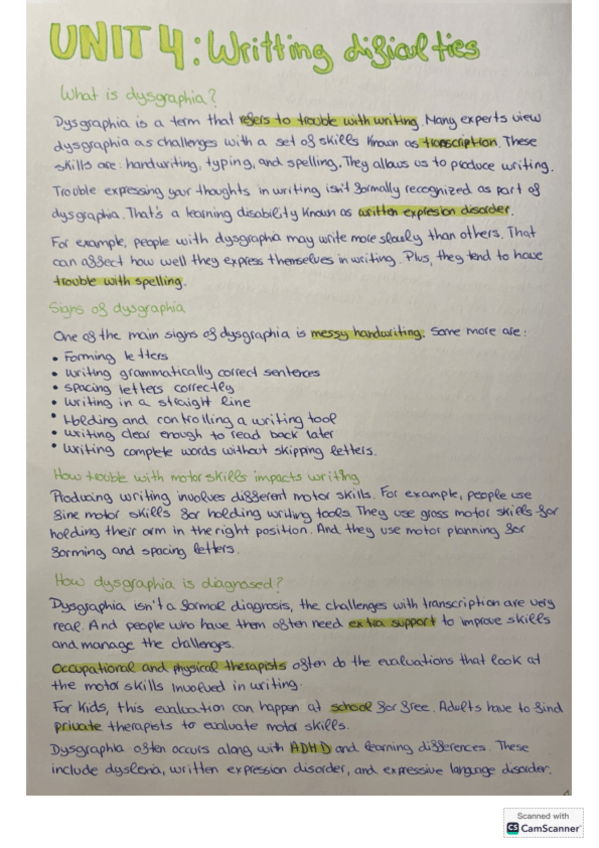 UNIT 4: Writting dificulties
What is dysgraphia?
Dysgraphia is a term that refers to trouble with writing. Many experts view
dysgraphia as challenges with a set of skills known as transcription. These
skills are: handwriting, typing, and spelling. They allows us to produce writing.
Trouble expressing your thoughts in writing isn't formally recognized as part of
dysgraphia. That's a learning disability known as written expresion disorder.
For example, people with dysgraphia may write more slowly than others. That
can affect how well they express themselves in writing. Plus, they tend to have
trouble with spelling.
Signs of dysgraphia
One of the main signs of dysgraphia is messy handwriting. Some more are:
• Forming letters
• Writing grammatically correct sentences
• Spacing letters correctly
• Writing in a straight line
• Holding and controlling a writing tool
• Writing clear enough to read back later
• Writing complete words without skipping letters.
How trouble with motor skills impacts writing
Producing writing involves different motor skills. For example, people use
fine motor skills for holding writing tools. They use gross motor skills for
holding their arm in the right position. And they use motor planning for
forming and spacing letters.
How dysgraphia is diagnosed?
Dysgraphia isn't a formal diagnosis, the challenges with transcription are very
real. And people who have them often need extra support to improve skills
and manage the challenges.
Occupational and physical therapists often do the evaluations that look at
the motor skills involved in writing.
For kids, this evaluation can happen at school for free. Adults have to find
private therapists to evaluate motor skills.
Dysgraphia often occurs along with ADHD and learning differences. These
include dyslexia, written expression disorder, and expressive language disorder.
Scanned with
CS CamScanner